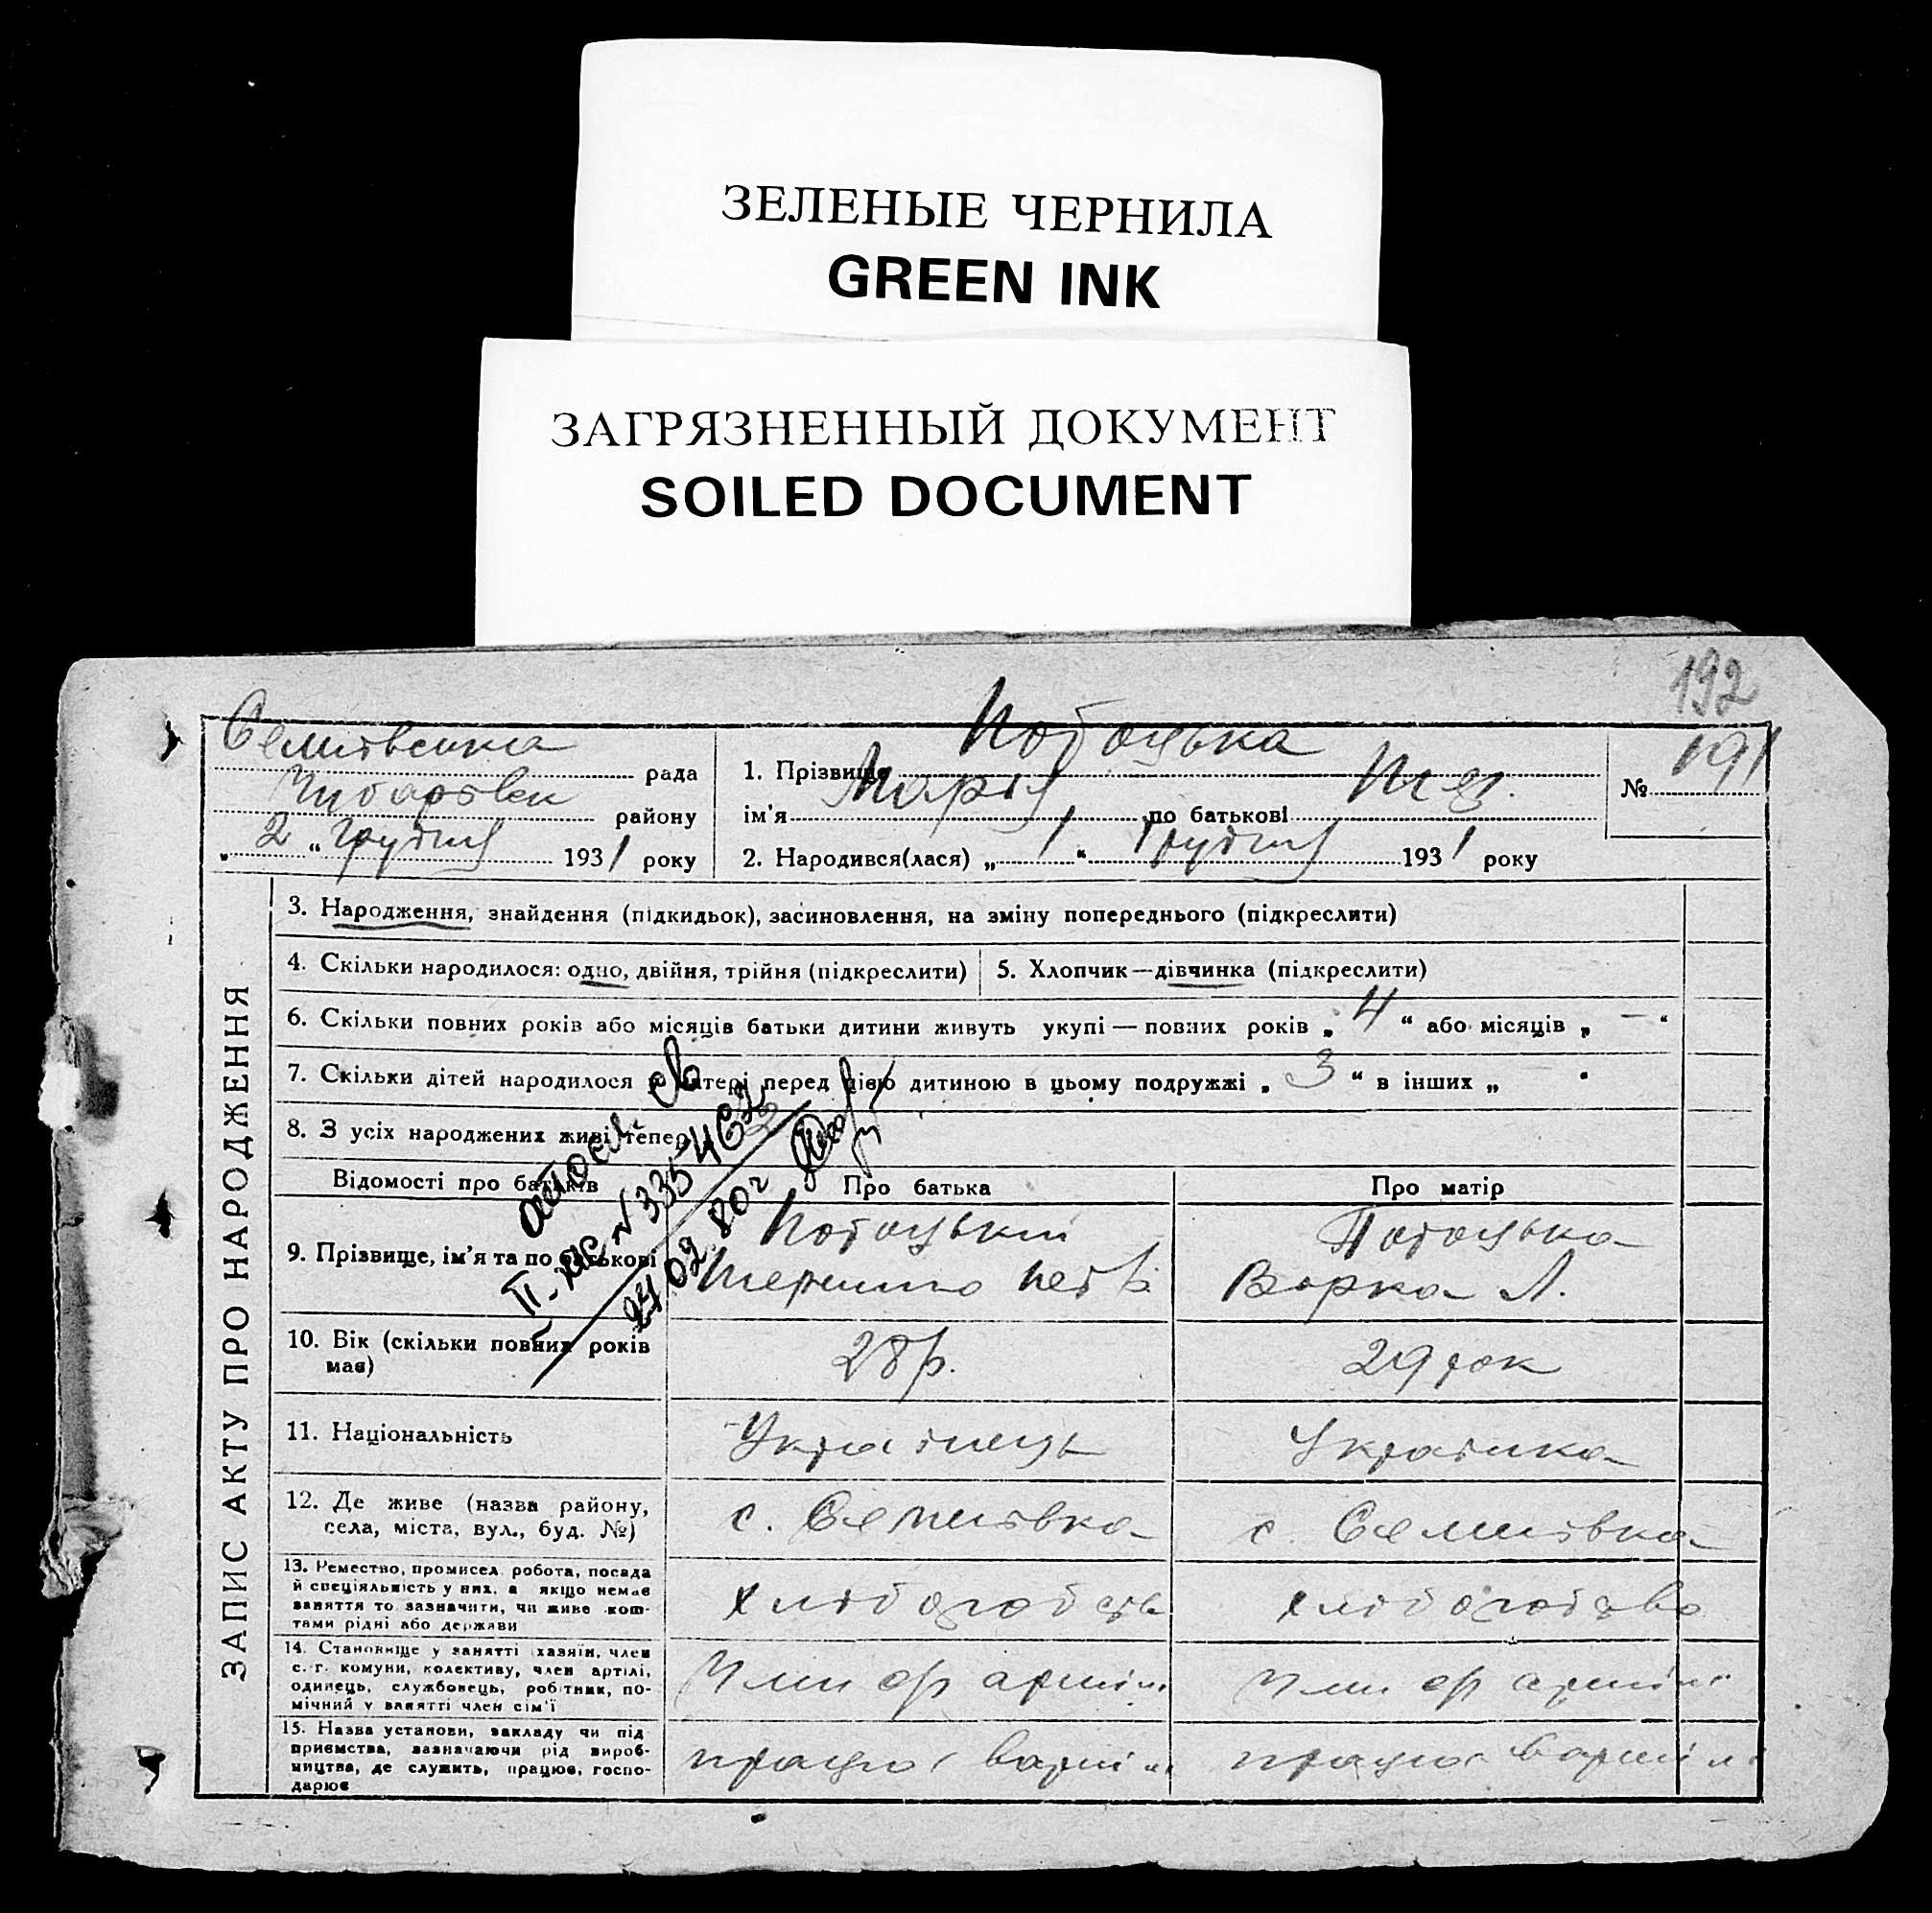 ЗЕЛЕНЫЕ ЧЕРНИЛА
GREEN INK
ЗАГРЯЗНЕННЫЙ ДОКУМЕНТ
SOILED DOCUMENT
192
ЗАПИС АКТУ ПРО НАРОДЖЕННЯ
Семиівська рада
району
„ 2 “ грудня 1931 року
1. Прізвище Потоцька
ім'я Марія по батькові Тер.
2. Народився(лася) „ 1 “ грудня 1931 року
№ 191
3. Народження, знайдення (підкидьок), засиновлення, на зміну попереднього (підкреслити)
4. Скільки народилося: одно, двійня, трійня (підкреслити)
5. Хлопчик—дівчинка (підкреслити)
6. Скільки повних років або місяців батьки дитини живуть укупі — повних років „ 4 “ або місяців „ — “
7. Скільки дітей народилося у матері перед цією дитиною в цьому подружжі „ 3 “ в інших „ “
8. З усіх народжених живі тепер 2
II- № 335462
24 02 80г
Відомості про батьків
Про батька
Про матір
9. Прізвище, ім'я та по батькові
Потоцький
Потоцька
Варка Л.
10. Вік (скільки повних років має)
28 р.
29 рок
11. Національність
Українець
Українка
12. Де живе (назва району, села, міста, вул., буд. №)
с. Семиівка
с. Семиівка
13. Ремество, промисел, робота, посада й спеціяльність у них, а якщо немає заняття то зазначити, чи живе коштами рідні або держави
хліборобств
хліборобство
14. Становище у занятті хазяїн, член с.-г. комуни, колективу, член артілі, одинець, службовець, робітник, помічний у занятті член сім'ї
Член ср артіли
Член ср артіли
15. Назва установи, закладу чи підприємства, зазначаючи рід виробництва, де служить, працює, господарює
працює вартіли
працює вартілі